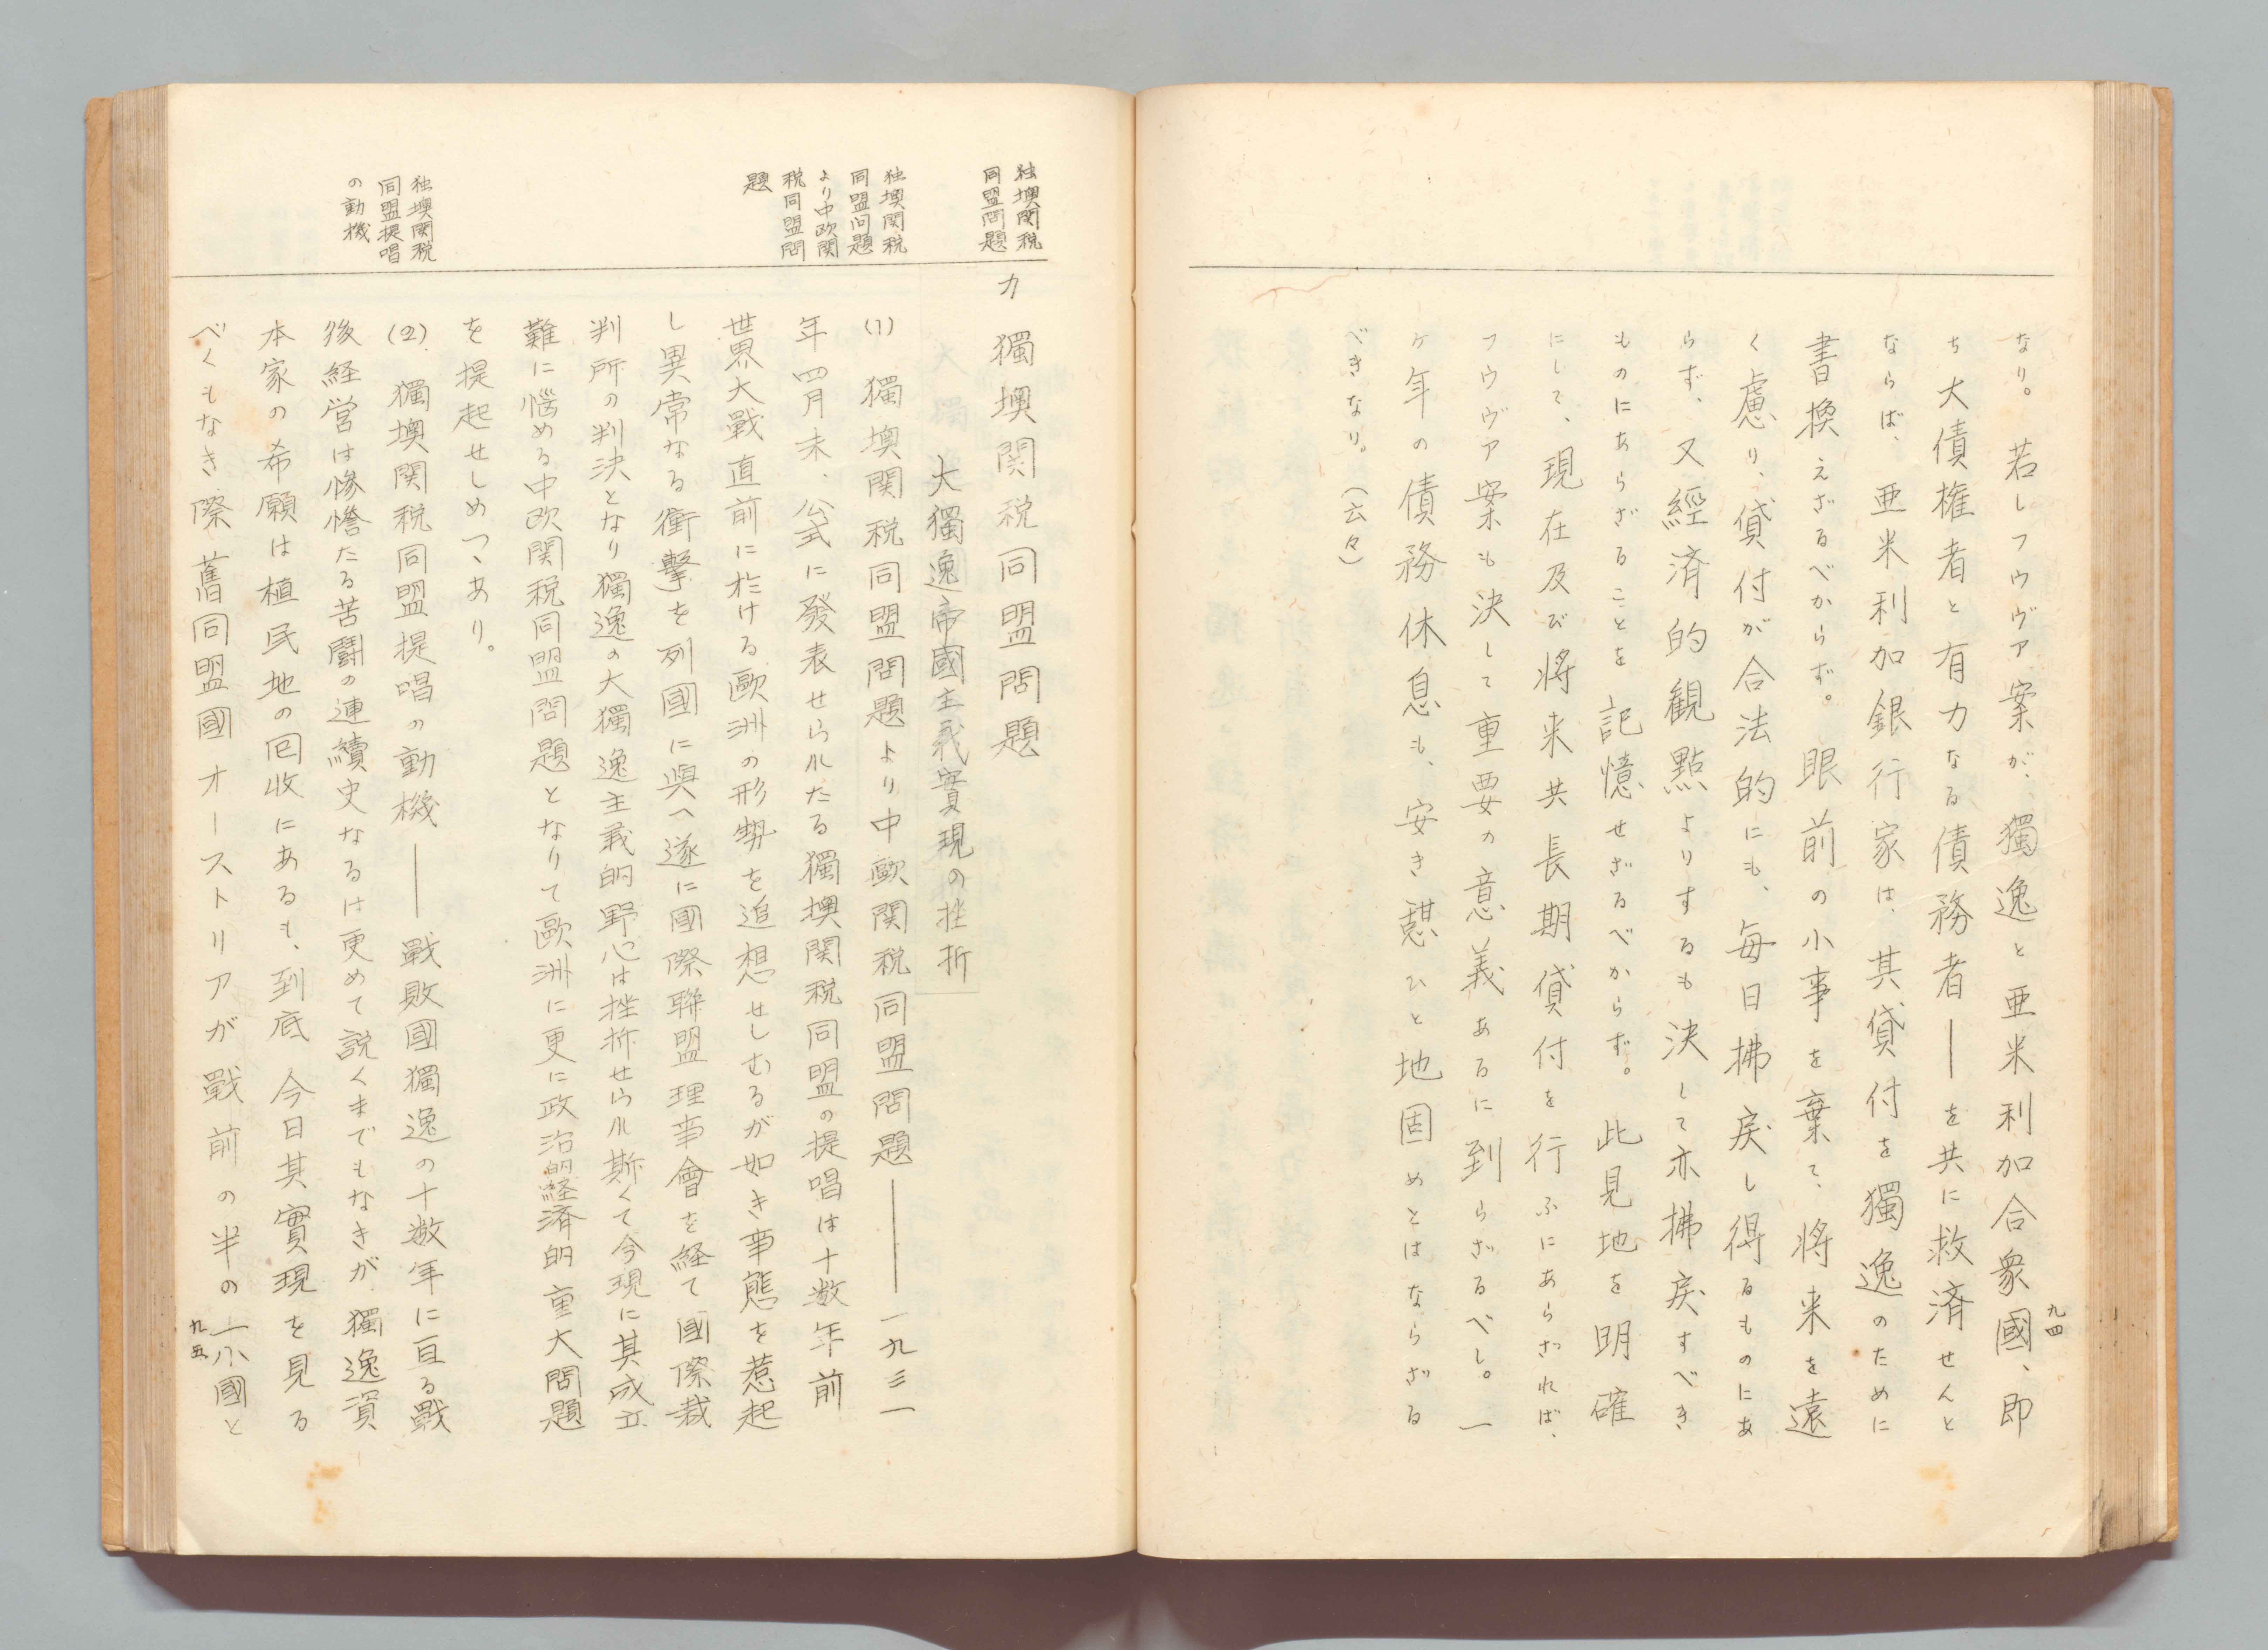 九四
なり。若しフウヴァ案が、獨逸と亜米利加合衆國、即
ち大債権者と有力なる債務者――を共に救済せんと
ならば、亜米利加銀行家は、其貸付を獨逸のために
書換えざるべからず。眼前の小事を棄て、将来を遠
く慮り、貸付が合法的にも、毎日拂戻し得るものにあ
らず、又經済的観點よりするも決して亦拂戻すべき
ものにあらざることを記憶せざるべからず。此見地を明確
にして、現在及び将来共長期貸付を行ふにあらざれば、
フウヴァ案も決して重要の意義あるに到らざるべし。一
ヶ年の債務休息も、安き憇ひと地固めとはならざる
べきなり。(云々)
独墺関税
同盟問題
独墺関税
同盟问題
より中欧関
税同盟問
題
独墺関税
同盟提唱
の動機
カ 獨墺関税同盟問題
大獨逸帝國主義實現の挫折
(1) 獨墺関税同盟問題より中歐関税同盟問題――一九三一
年四月末、公式に發表せられたる獨墺関税同盟の提唱は十数年前
世界大戰直前に於ける歐洲の形勢を追想せしむるが如き事態を惹起
し異常なる衝擊を列國に與へ遂に國際聯盟理事會を経て國際裁
判所の判決となり獨逸の大獨逸主義的野心は挫折せられ斯くて今現に其成立
難に悩める中欧関税同盟問題となりて歐洲に更に政治的経済的重大問題
を提起せしめつゝあり。
(2). 獨墺関税同盟提唱の動機――戰敗國獨逸の十数年に亘る戰
後経営は惨憺たる苦闘の連續史なるは更めて説くまでもなきが獨逸資
本家の希願は植民地の回收にあるも、到底今日其實現を見る
べくもなき際舊同盟國オーストリアが戰前の半の一小國と
九五